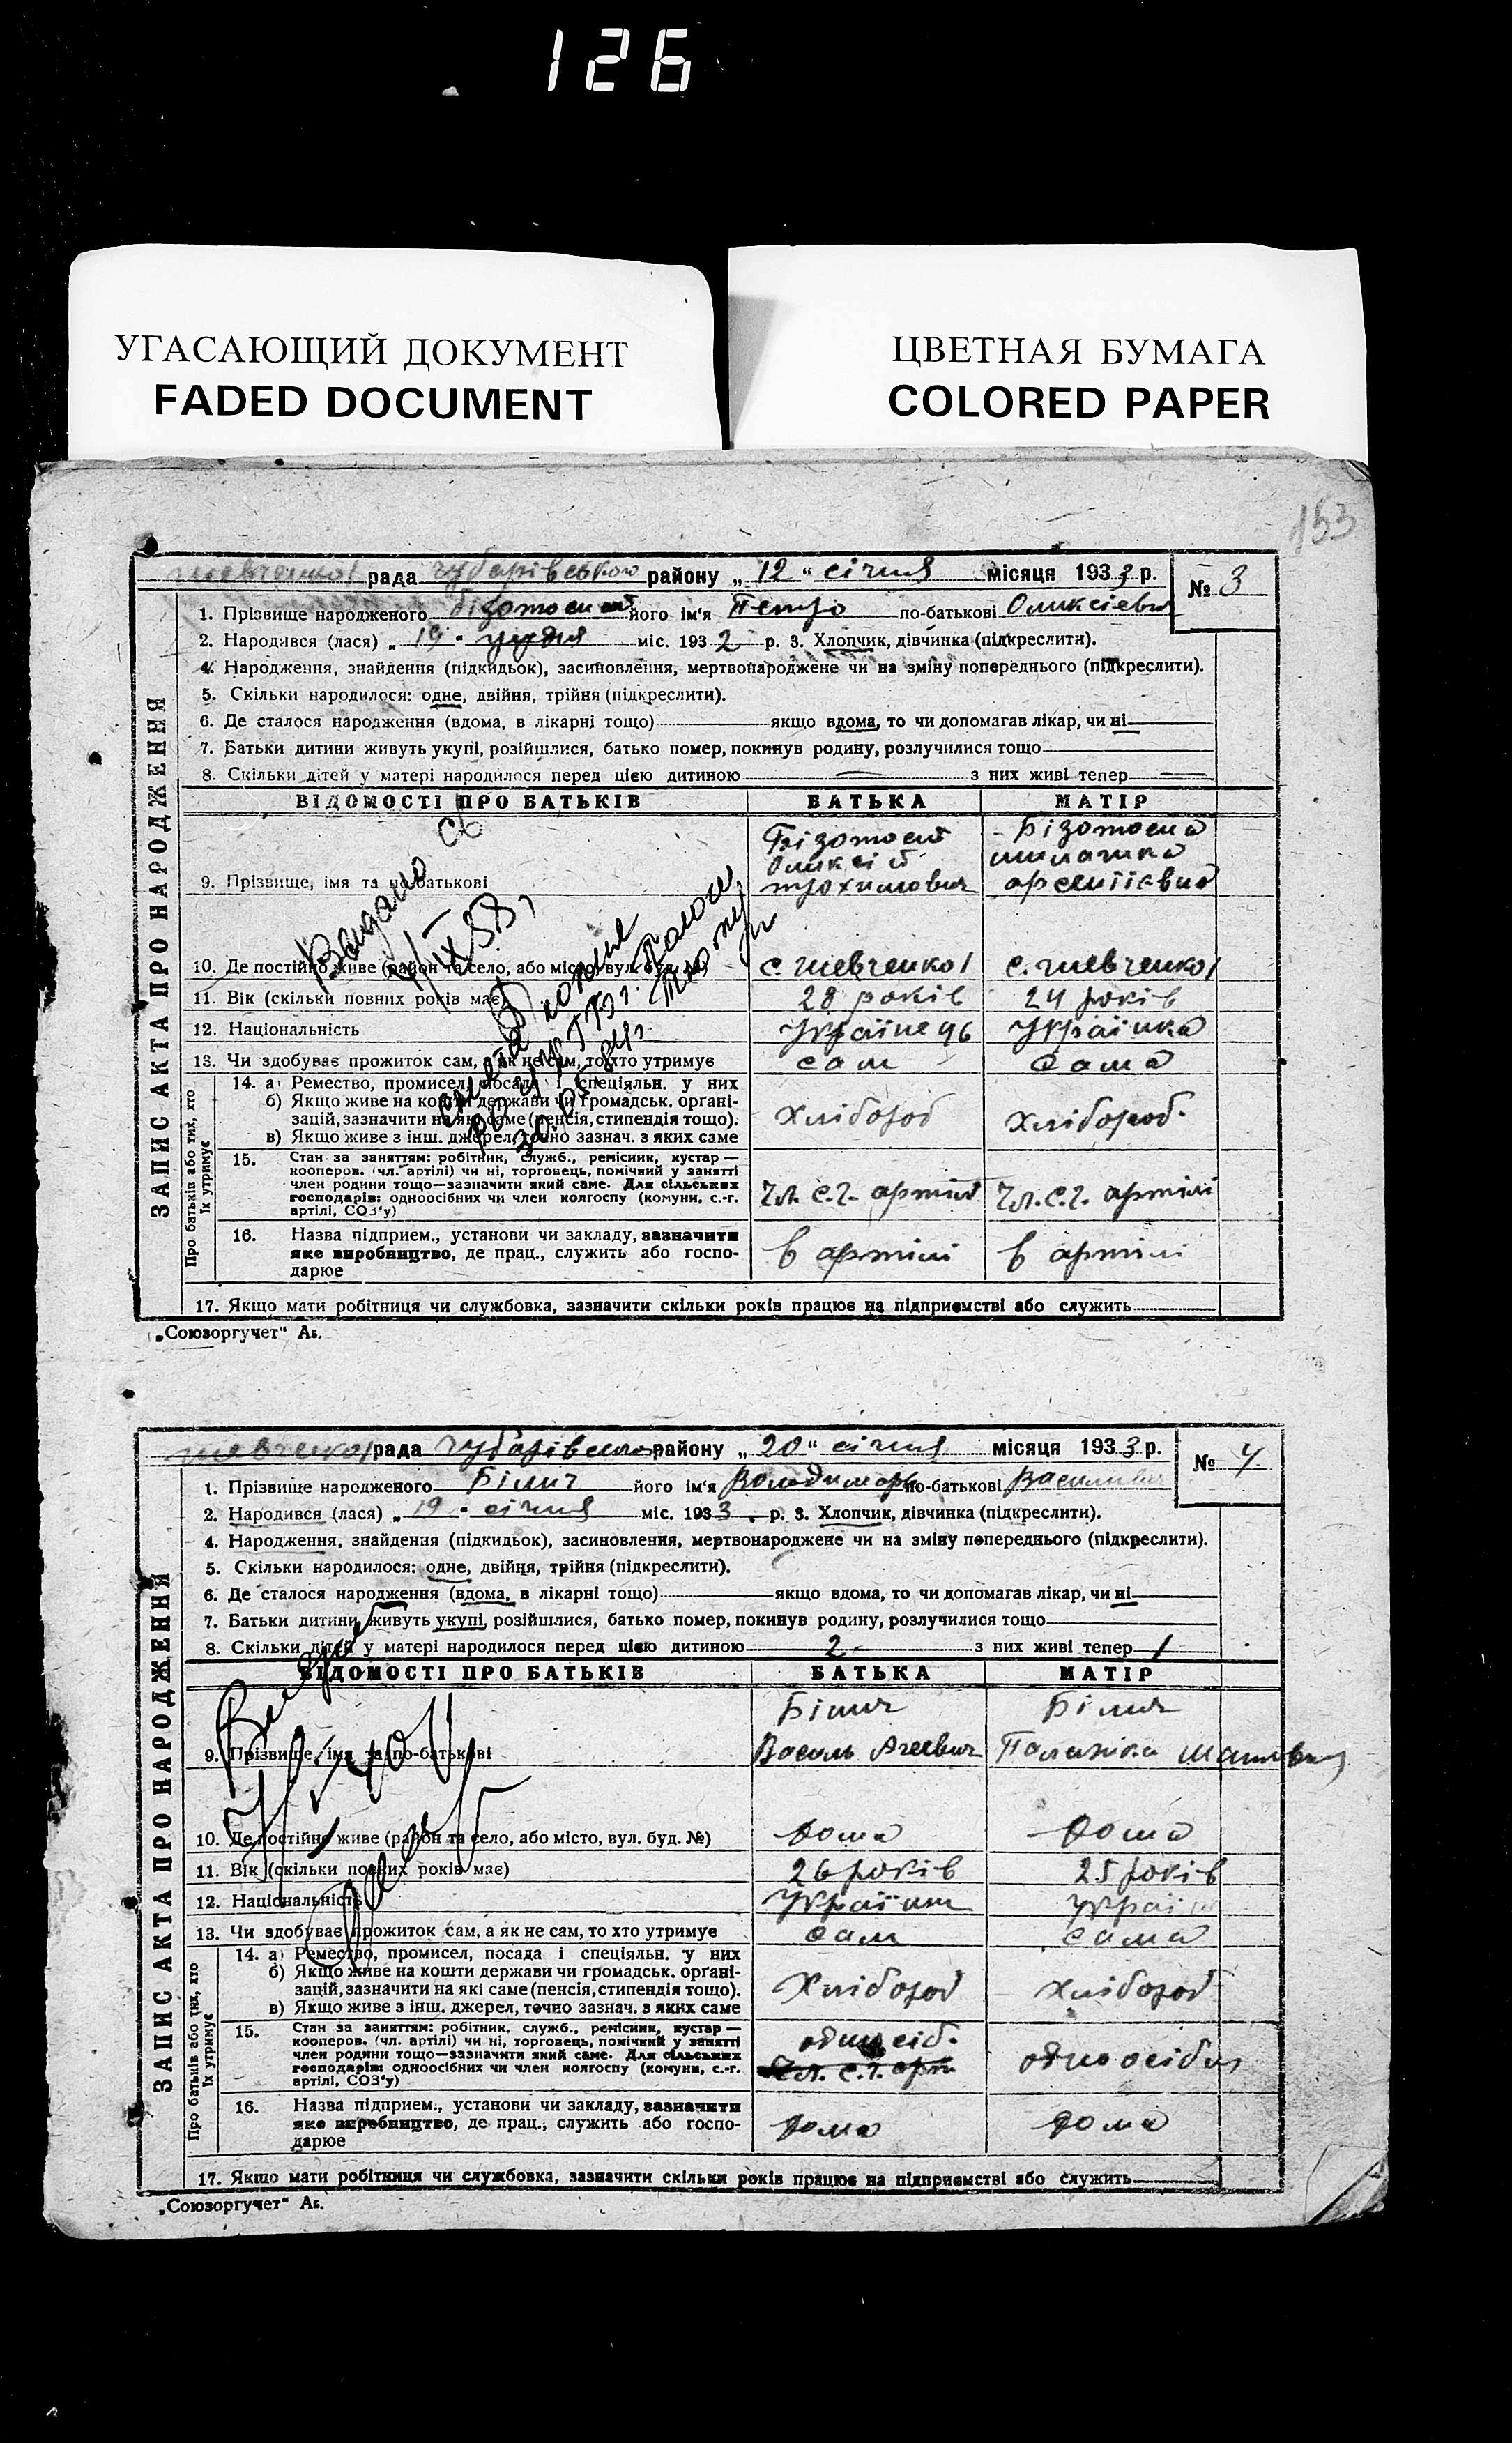 126
УГАСАЮЩИЙ ДОКУМЕНТ
FADED DOCUMENT
ЦВЕТНАЯ БУМАГА
COLORED PAPER
153
рада Чубарівського району „ 12 “ січня місяця 1933 р. № 3
ЗАПИС АКТА ПРО НАРОДЖЕННЯ
1. Прізвище народженого його ім'я Петро по-батькові
2. Народився (лася) „ 19 " грудня міс. 1932 р. 3. Хлопчик, дівчинка (підкреслити).
4. Народження, знайдення (підкидьок), засиновлення, мертвонароджене чи на зміну попереднього (підкреслити).
5. Скільки народилося: одне, двійня, трійня (підкреслити).
6. Де сталося народження (вдома, в лікарні тощо) якщо вдома, то чи допомагав лікар, чи ні
7. Батьки дитини живуть укупі, розійшлися, батько помер, покинув родину, розлучилися тощо
8. Скільки дітей у матері народилося перед цією дитиною — з них живі тепер —
ВІДОМОСТІ ПРО БАТЬКІВ БАТЬКА МАТІР
9. Прізвище, імя та по-батькові
10. Де постійно живе (район та село, або місто, вул. буд. №) с. Шевченко с. Шевченко
11. Вік (скільки повних років має) 28 років 24 років
12. Національність Українець Українка
13. Чи здобуває прожиток сам, а як не сам, то хто утримує сам сама
Про батьків або тих, хто їх утримує
14. а) Ремество, промисел, посада і спеціяльн. у них
б) Якщо живе на кошти держави чи громадськ. органі-
зацій, зазначити на які саме (пенсія, стипендія тощо). хлібороб хлібороб.
в) Якщо живе з інш. джерел, точно зазнач. з яких саме
15. Стан за заняттям: робітник, служб., ремісник, кустар —
кооперов. (чл. артілі) чи ні, торговець, помічний у занятті
член родини тощо—зазначити який саме. Для сільських
господарів: одноосібних чи член колгоспу (комуни, с.-г. чл. с.г. артілі чл. с.г. артілі
артілі, СОЗ'у)
16. Назва підприєм., установи чи закладу, зазначити
яке виробництво, де прац., служить або госпо- в артілі в артілі
дарює
17. Якщо мати робітниця чи службовка, зазначити скільки років працює на підприємстві або служить
„Союзоргучет“
рада Чубарівського району „ 20 “ січня місяця 1933 р. № 4
ЗАПИС АКТА ПРО НАРОДЖЕННЯ
1. Прізвище народженого Білич його ім'я по-батькові
2. Народився (лася) „ 19 " січня міс. 1933 р. 3. Хлопчик, дівчинка (підкреслити).
4. Народження, знайдення (підкидьок), засиновлення, мертвонароджене чи на зміну попереднього (підкреслити).
5. Скільки народилося: одне, двійня, трійня (підкреслити).
6. Де сталося народження (вдома, в лікарні тощо) якщо вдома, то чи допомагав лікар, чи ні
7. Батьки дитини живуть укупі, розійшлися, батько помер, покинув родину, розлучилися тощо
8. Скільки дітей у матері народилося перед цією дитиною 2 з них живі тепер 1
ВІДОМОСТІ ПРО БАТЬКІВ БАТЬКА МАТІР
Білич Білич
9. Прізвище, імя та по-батькові Василь
10. Де постійно живе (район та село, або місто, вул. буд. №) дома дома
11. Вік (скільки повних років має) 26 років 25 років
12. Національність
13. Чи здобуває прожиток сам, а як не сам, то хто утримує сам сама
Про батьків або тих, хто їх утримує
14. а) Ремество, промисел, посада і спеціяльн. у них
б) Якщо живе на кошти держави чи громадськ. органі-
зацій, зазначити на які саме (пенсія, стипендія тощо). Хлібороб хлібороб
в) Якщо живе з інш. джерел, точно зазнач. з яких саме
15. Стан за заняттям: робітник, служб., ремісник, кустар —
кооперов. (чл. артілі) чи ні, торговець, помічний у занятті
член родини тощо—зазначити який саме. Для сільських
господарів: одноосібних чи член колгоспу (комуни, с.-г.
артілі, СОЗ'у)
16. Назва підприєм., установи чи закладу, зазначити
яке виробництво, де прац., служить або госпо- дома дома
дарює
17. Якщо мати робітниця чи службовка, зазначити скільки років працює на підприємстві або служить
„Союзоргучет“